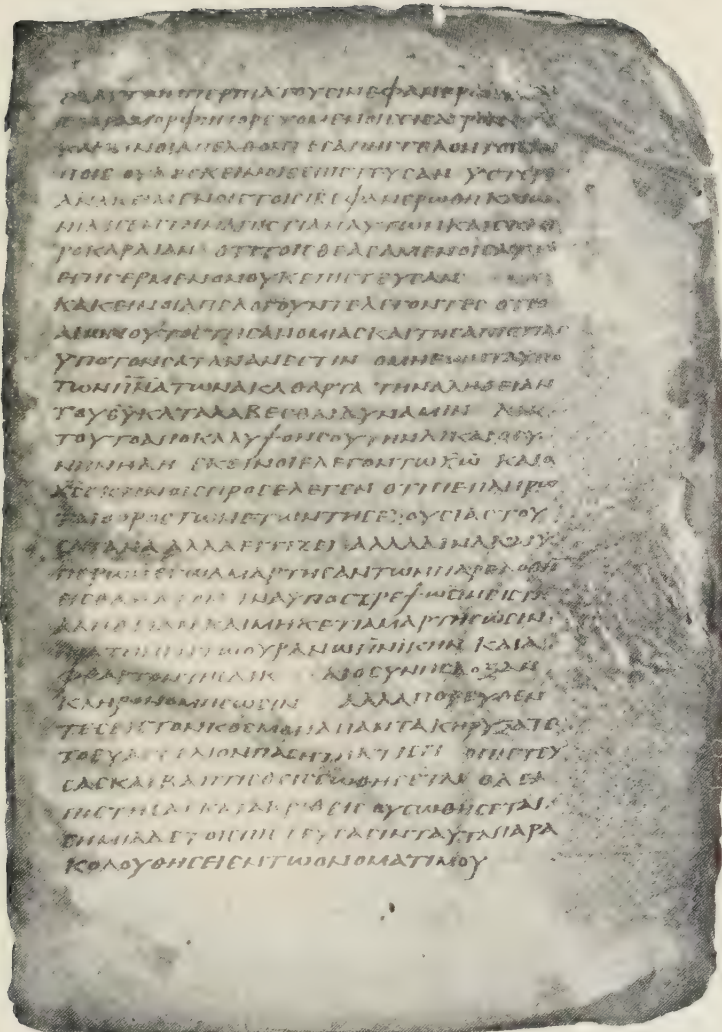 ΤΕΡΑ ΜΟΡΦΗ ΠΟΡΕΥΟΜΕΝΟΙΣ ΕΙΣ
ΚΑΚΕΙΝΟΙ ΑΠΕΛΘΟΝΤΕΣ
ΟΥΔΕ ΕΚΕΙΝΟΙΣ ΕΠΙΣΤΕΥΣΑΝ ΥΣΤΕΡΟ
ΑΝΑΚΕΙΜΕΝΟΙΣ ΤΟΙΣ ΕΦΑΝΕΡΩΘΗ ΚΑΙ
ΤΗΝ ΑΠΙΣΤΙΑΝ ΑΥΤΩΝ ΚΑΙ
ΡΟΚΑΡΔΙΑΝ ΟΤΙ ΤΟΙΣ ΘΕΑΣΑΜΕΝΟΙΣ
ΕΓΗΓΕΡΜΕΝΟΝ ΟΥΚ ΕΠΙΣΤΕΥΣΑΝ
ΚΑΚΕΙΝΟΙ ΑΠΕΛΟΓΟΥΝΤΕ ΛΕΓΟΝΤΕΣ ΟΤΙ Ο
ΑΙΩΝ ΟΥΤΟΣ ΤΗΣ ΑΝΟΜΙΑΣ ΚΑΙ ΤΗΣ ΑΠΙΣΤΙΑΣ
ΥΠΟ ΤΟΝ ΣΑΤΑΝΑΝ ΕΣΤΙΝ Ο ΜΗ ΕΩΝ ΤΑ ΥΠΟ
ΤΩΝ ΠΝΑΤΩΝ ΑΚΑΘΑΡΤΑ ΤΗΝ ΑΛΗΘΕΙΑΝ
ΤΟΥ ΘΥ ΚΑΤΑΛΑΒΕΣΘΑΙ ΔΥΝΑΜΙΝ ΔΙΑ
ΤΟΥΤΟ ΑΠΟΚΑΛΥΨΟΝ ΣΟΥ ΤΗΝ ΔΙΚΑΙΟΣΥ
ΝΗΝ ΗΔΗ ΕΚΕΙΝΟΙ ΕΛΕΓΟΝ ΤΩ ΧΩ ΚΑΙ Ο
ΧΣ ΕΚΕΙΝΟΙΣ ΠΡΟΣΕΛΕΓΕΝ ΟΤΙ ΠΕΠΛΗΡΩ
ΤΑΙ Ο ΟΡΟΣ ΤΩΝ ΕΤΩΝ ΤΗΣ ΕΞΟΥΣΙΑΣ ΤΟΥ
ΣΑΤΑΝΑ ΑΛΛΑ ΕΓΓΙΖΕΙ ΑΛΛΑ ΔΙΝΑ ΚΑΙ Υ
ΠΕΡ ΩΝ ΕΓΩ ΑΜΑΡΤΗΣΑΝΤΩΝ ΠΑΡΕΔΟΘΗ
ΕΙΣ ΘΑΝΑΤΟΝ ΙΝΑ ΥΠΟΣΤΡΕΨΩΣΙΝ ΕΙΣ Τ
ΑΛΗΘΕΙΑΝ ΚΑΙ ΜΗΚΕΤΙ ΑΜΑΡΤΗΣΩΣΙΝ
ΙΝΑ ΤΗΝ ΕΝ ΤΩ ΟΥΡΑΝΩ ΠΝΙΚΗΝ ΚΑΙ Α
ΦΘΑΡΤΟΝ ΤΗΣ ΔΙΚΑΙΟΣΥΝΗΣ ΔΟΞΑΝ
ΚΛΗΡΟΝΟΜΗΣΩΣΙΝ ΑΛΛΑ ΠΟΡΕΥΘΕΝ
ΤΕΣ ΕΙΣ ΤΟΝ ΚΟΣΜΟΝ ΑΠΑΝΤΑ ΚΗΡΥΞΑΤΕ
ΤΟ ΕΥΑΓΓΕΛΙΟΝ ΠΑΣΗ ΤΗ ΚΤΙΣΕΙ Ο ΠΙΣΤΕΥ
ΣΑΣ ΚΑΙ ΒΑΠΤΙΣΘΕΙΣ ΣΩΘΗΣΕΤΑΙ Ο ΔΕ Α
ΠΙΣΤΗΣΑΣ ΚΑΤΑΚΡΙΘΕΙΣ ΟΥ ΣΩΘΗΣΕΤΑΙ
ΣΗΜΙΑ ΔΕ ΤΟΙΣ ΠΙΣΤΕΥΣΑΣΙΝ ΤΑΥΤΑ ΠΑΡΑ
ΚΟΛΟΥΘΗΣΕΙ ΕΝ ΤΩ ΟΝΟΜΑΤΙ ΜΟΥ